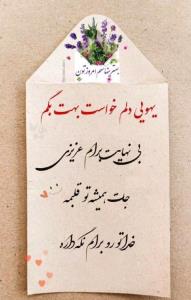 یهویی دلم خواست بهت بگم
بی نهایت برام عزیزی
جات همیشه تو قلبمه
خدا تو رو برام نگه داره